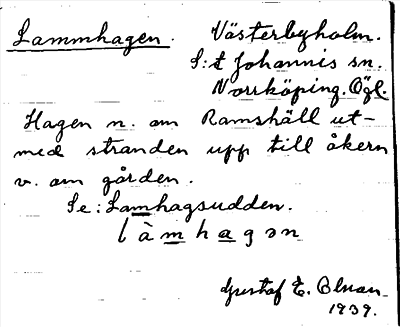 Lammhagen. Västerbyholm.
S:t Johannis sn.
Norrköping. Ögl.
Hagen n. om Ramshäll ut-
med stranden upp till åkern
v. om gården.
Se: Lamhagsudden.
làmhagən
Gustaf E.
1939.